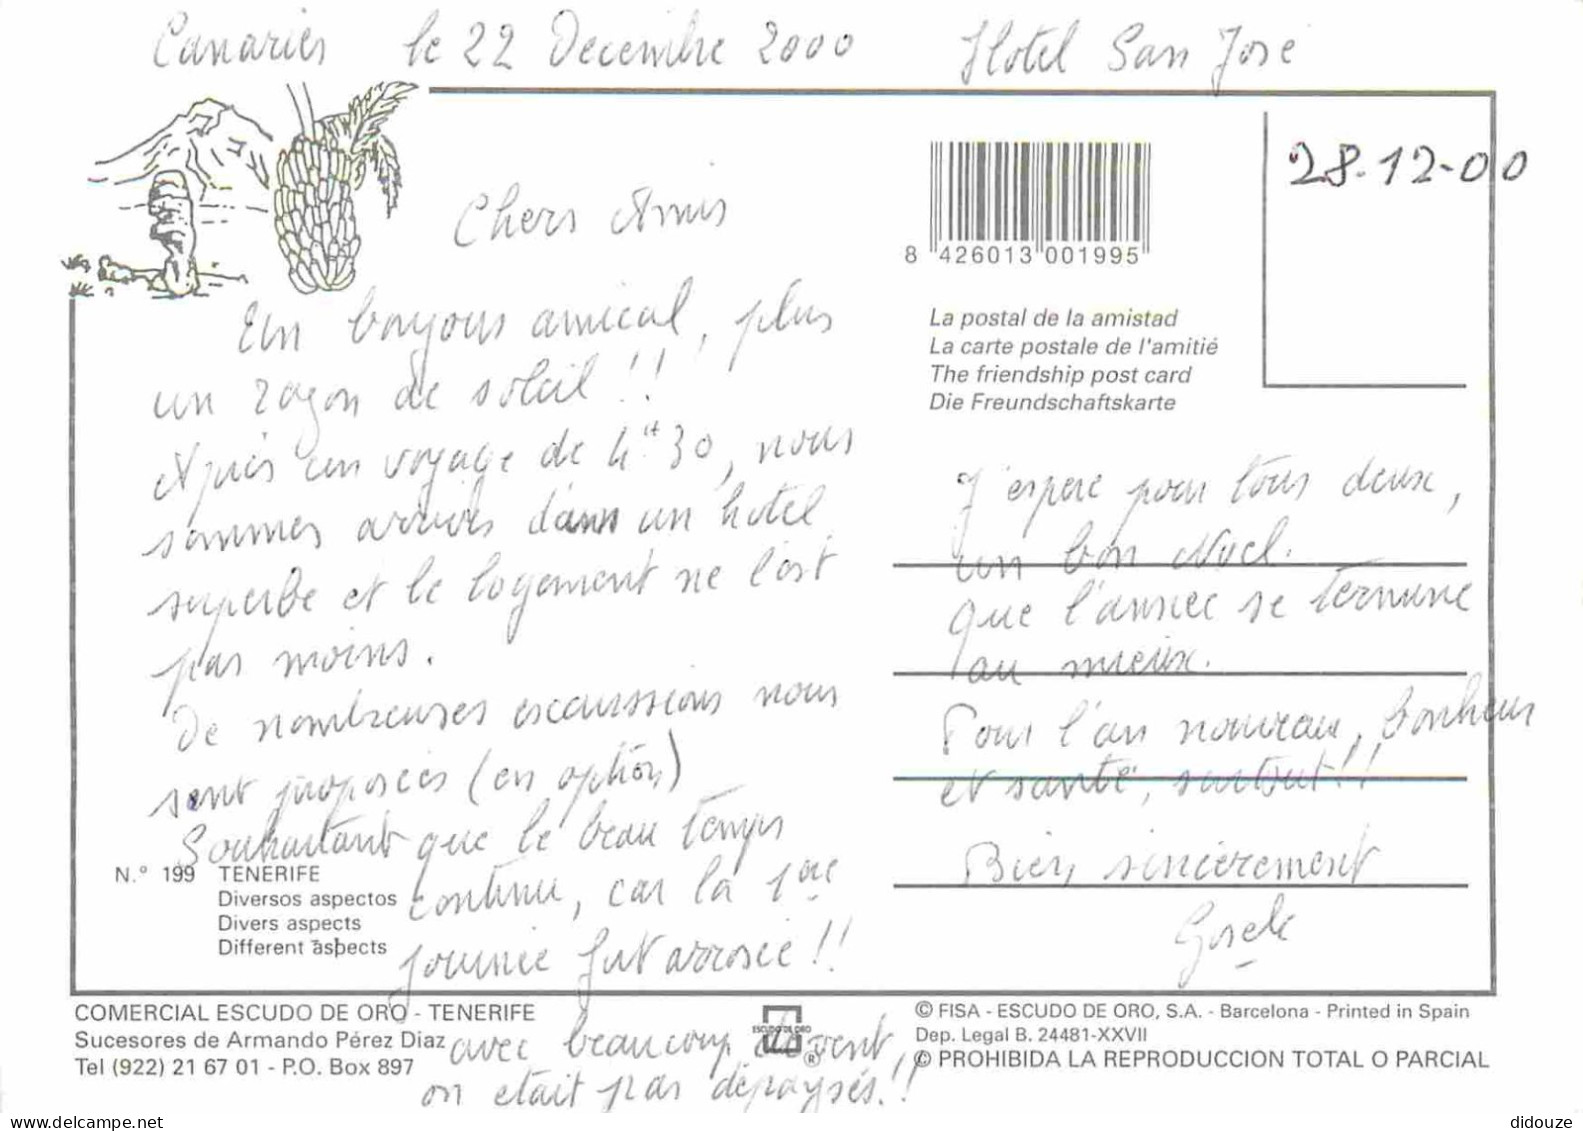 Canaries le 22 Decembre 2000 Hotel San José
28-12-00
Chers Amis
Un bonjour amical, plus
un rayon de soleil!!
Après un voyage de 4H30, nous
sommes arrivés dans un hotel
superbe et le logement ne l'est
pas moins.
De nombreuses excurssions nous
sont proposées (en option)
Souhaitant que le beau temps
continue, car la 1ere
journée fut arrosée!!
avec beaucoup de vent,
on etait pas dépaysés!!
8 426013 001995
La postal de la amistad
La carte postale de l'amitié
The friendship post card
Die Freundschaftskarte
J'espere pour tous deux,
un bon Noel.
que l'année se termine
au mieux.
Pour l'an nouveau, bonheur
et santé, surtout!!
Bien sincèrement
N.º 199 TENERIFE
Diversos aspectos
Divers aspects
Different aspects
COMERCIAL ESCUDO DE ORO - TENERIFE
Sucesores de Armando Pérez Díaz
Tel (922) 21 67 01 - P.O. Box 897
ESCUDO DE ORO
®
© FISA - ESCUDO DE ORO, S.A. - Barcelona - Printed in Spain
Dep. Legal B. 24481-XXVII
© PROHIBIDA LA REPRODUCCION TOTAL O PARCIAL
didouze